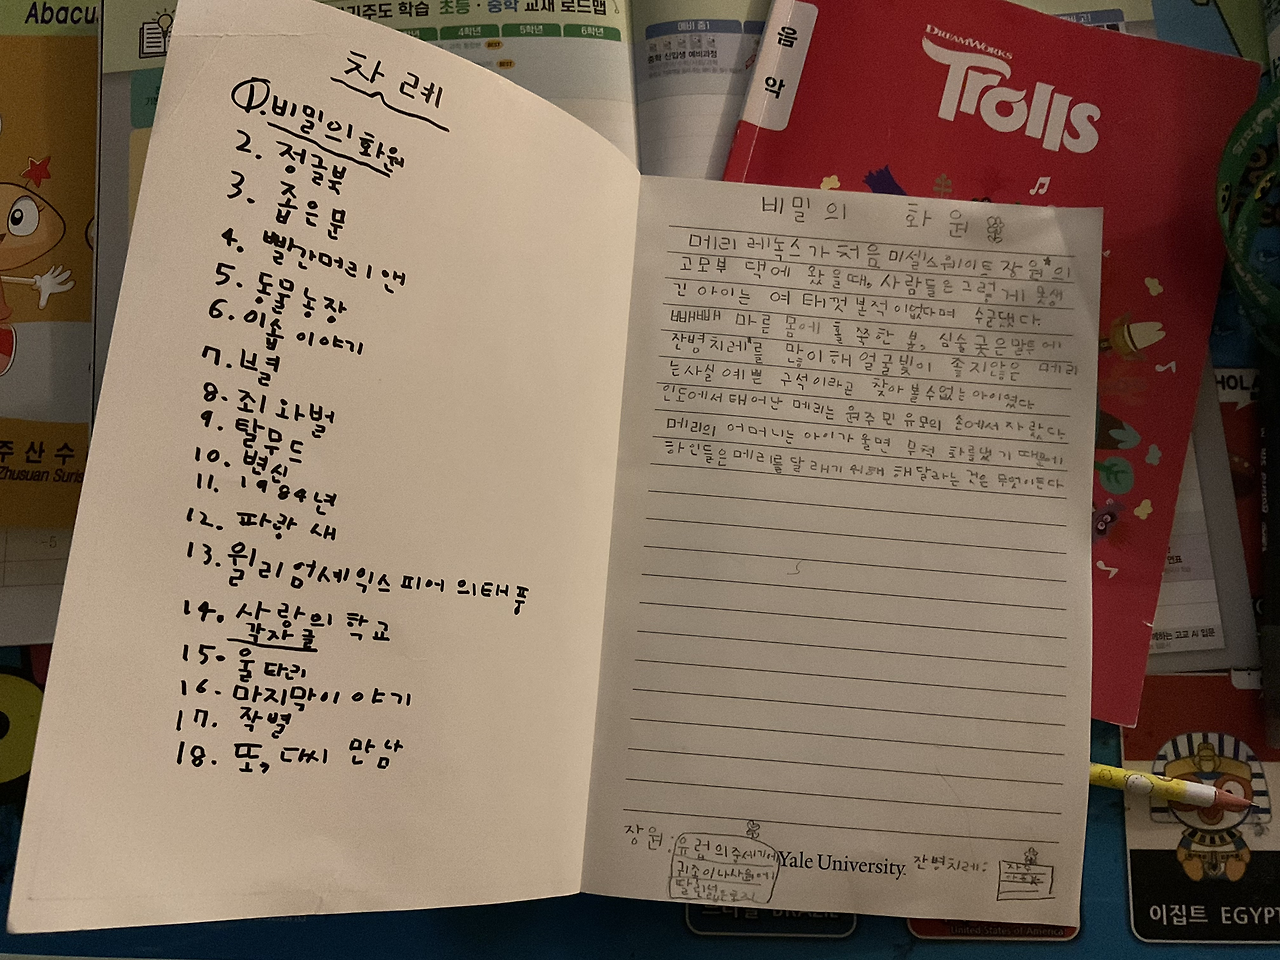 차례
1. 비밀의 화원
2. 정글북
3. 좁은 문
4. 빨간머리 앤
5. 동물농장
6. 이솝 이야기
7. 변렬
8. 죄와벌
9. 탈무드
10. 변신
11. 1984년
12. 파랑새
13. 윌리엄세익스피어의태풍
14. 사랑의 학교
각자를
15. 울타리
16. 마지막이야기
17. 작별
18. 또, 다시 만남
비밀의 화원
메리 레녹스가 처음 미셀스웨이트 장원*의
고모부 댁에 왔을때, 사람들은 그렇게 못생
긴 아이는 여태껏 본적이없다며 수군댔다.
빼빼 마른 몸에 홀쭉한 볼, 심술궂은말투에
잔병치레*를 많이해 얼굴빛이 좋지않은 메리
는사실 예쁜 구석이라곤 찾아볼수없는아이였다
인도에서 태어난 메리는 원주민 유모의 손에서 자랐다.
메리의 어머니는 아이가 울면 무척 화를냈기 때문에
하인들은 메리를 달래기 위해 해달라는 것은 무엇이든다
장원: 유럽의중세기에
귀족이나사원에
딸린넓은토지
Yale University.
잔병치레:
자주
Abacu
주산수
Zhusuan Suris
-5
기주도 학습 초등·중학 교재 로드맵
4학년 5학년 6학년
BEST
BEST
예비 중1
중학 신입생 예비과정
예비 고1
음악
DREAMWORKS
Trolls
HOLA
연표
함께하는 고교 AI 입문
브라질 BRAZIL
United States of America
이집트 EGYPT